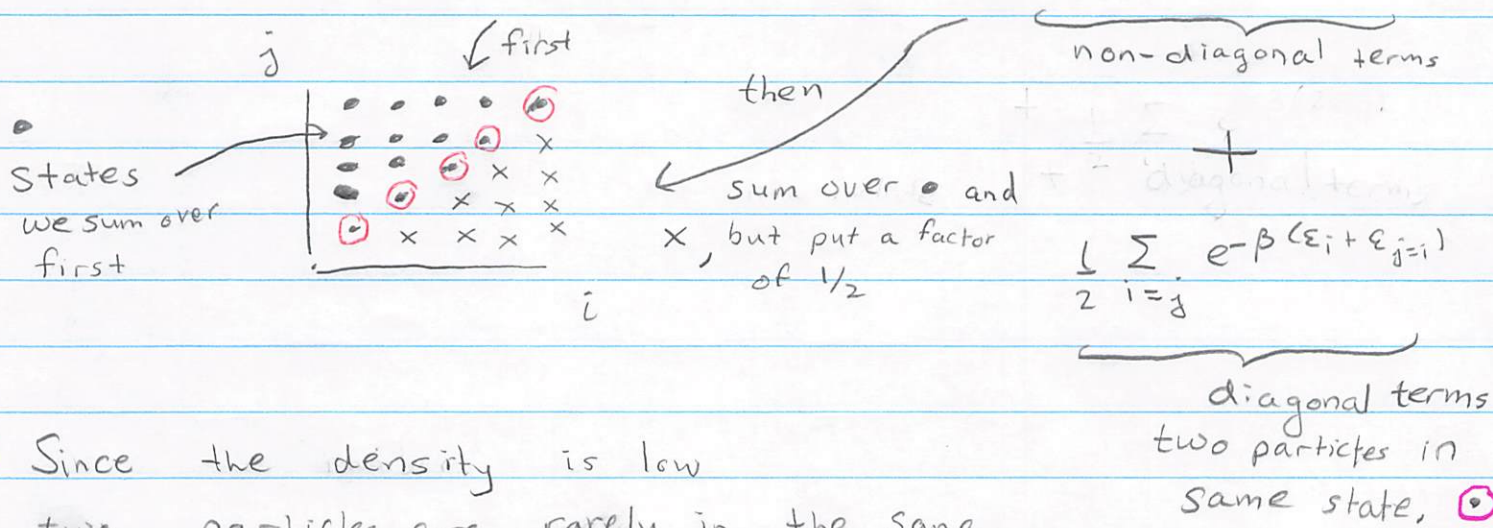 j
first
then
non-diagonal terms
•
states
we sum over
first
sum over • and
x, but put a factor
of 1/2
i
+
1/2 Σ i=j e-β(εi + εj=i)
diagonal terms
two particles in
same state, ⊙
Since the density is low
two particles are rarely in the same